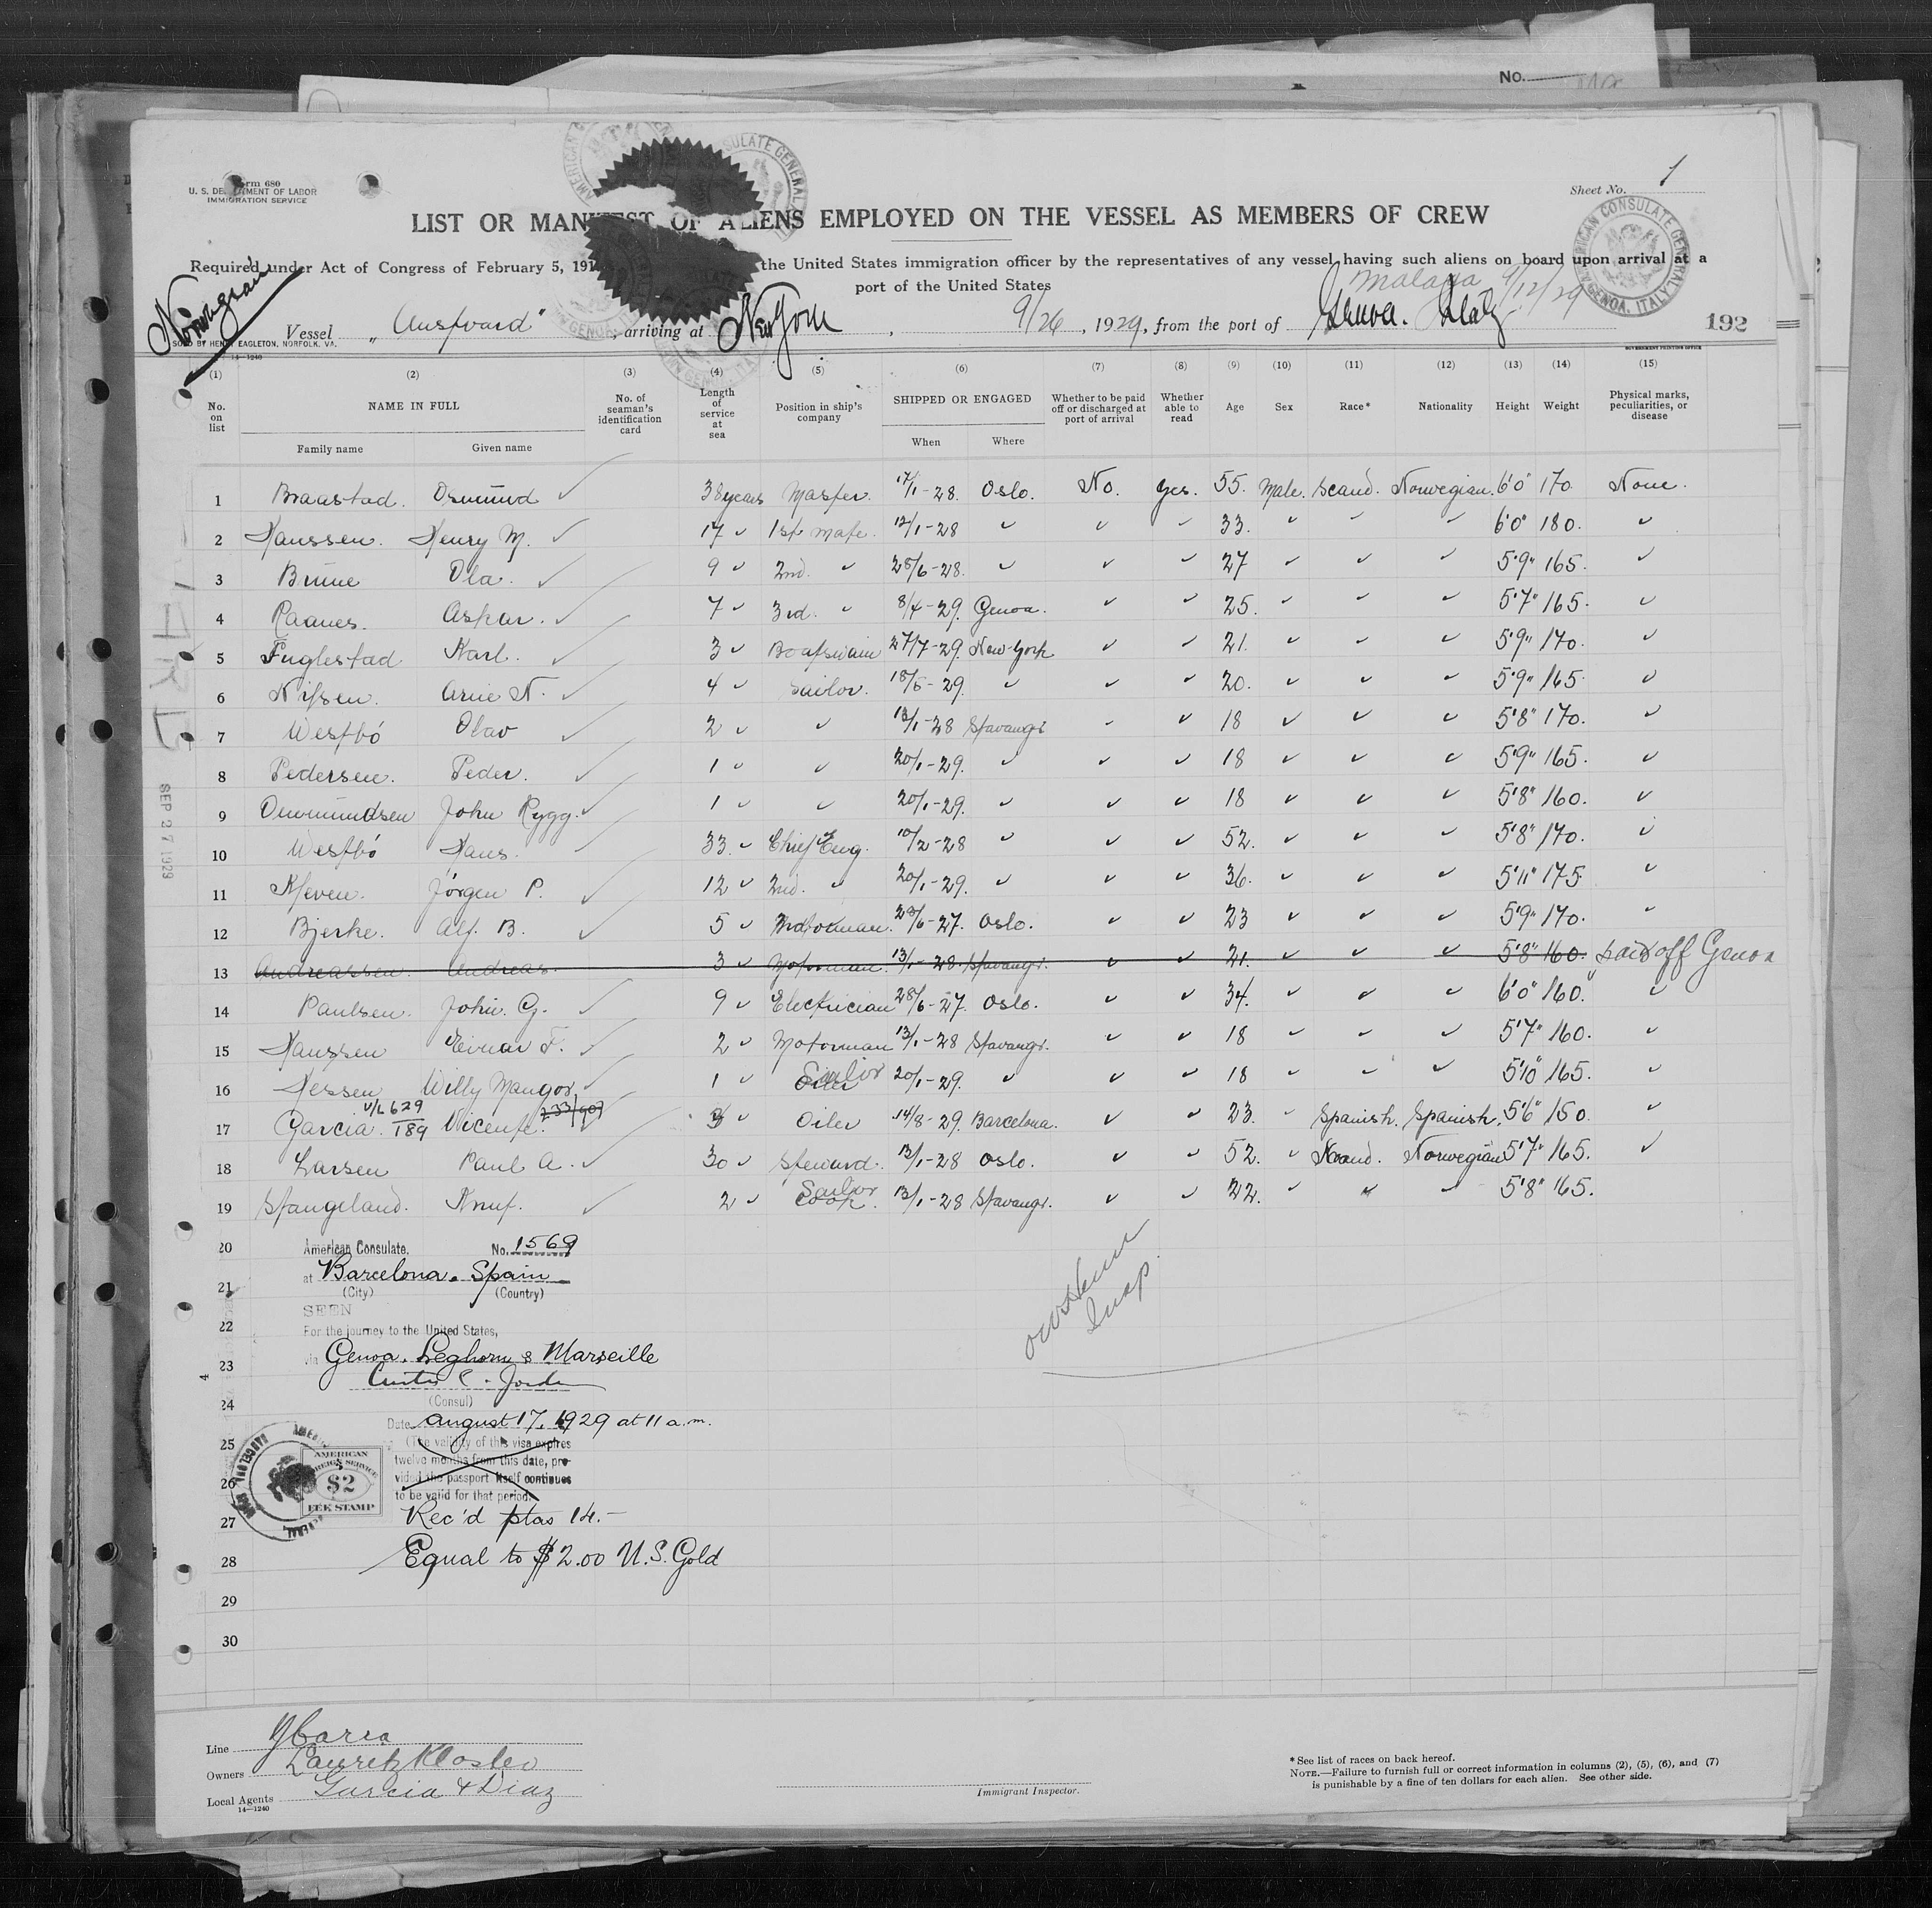 No.
Form 680
U. S. DEPARTMENT OF LABOR
IMMIGRATION SERVICE
Sheet No. 1
AMERICAN CONSULATE GENERAL GENOA, ITALY
LIST OR MANIFEST OF ALIENS EMPLOYED ON THE VESSEL AS MEMBERS OF CREW
Required under Act of Congress of February 5, 191 the United States immigration officer by the representatives of any vessel having such aliens on board upon arrival at a
port of the United States
Norwegian
Malaga 9/12/29
Vessel „Austvard“, arriving at New York, 9/26, 1929, from the port of Genoa. Italy
SOLD BY HENRY EAGLETON, NORFOLK, VA.
14—1240
192
GOVERNMENT PRINTING OFFICE
(1) (2) (3) (4) (5) (6) (7) (8) (9) (10) (11) (12) (13) (14) (15)
No. on list NAME IN FULL No. of seaman's identification card Length of service at sea Position in ship's company SHIPPED OR ENGAGED Whether to be paid off or discharged at port of arrival Whether able to read Age Sex Race* Nationality Height Weight Physical marks, peculiarities, or disease
Family name Given name When Where
1 Braastad. Osmund ✓ 38 years Master. 17/1-28. Oslo. No. yes. 55. Male. Scand. Norwegian. 6'0" 170 None.
2 Hanssen. Henry M. ✓ 17 ✓ 1st mate. 12/1-28 ✓ ✓ ✓ 33. ✓ ✓ ✓ 6'0" 180. ✓
3 Brune Ola. ✓ 9 ✓ 2nd. ✓ 28/6-28. ✓ ✓ ✓ 27 ✓ ✓ ✓ 5'9" 165. ✓
4 Raanes. Askar. ✓ 7 ✓ 3rd. ✓ 8/4-29. Genoa. ✓ ✓ 25. ✓ ✓ ✓ 5'7" 165. ✓
5 Fuglestad Karl. ✓ 3 ✓ Boatswain 27/7-29. New York ✓ ✓ 21. ✓ ✓ ✓ 5'9" 170. ✓
6 Nilsen. Arne N. ✓ 4 ✓ Sailor. 18/5-29. ✓ ✓ ✓ 20. ✓ ✓ ✓ 5'9" 165. ✓
7 Westbó Olav ✓ 2 ✓ ✓ 13/1-28 Stavangr ✓ ✓ 18 ✓ ✓ ✓ 5'8" 170. ✓
8 Pedersen. Peder. ✓ 1 ✓ ✓ 20/1-29. ✓ ✓ ✓ 18 ✓ ✓ ✓ 5'9" 165. ✓
9 Omundsen John Rygg. ✓ 1 ✓ ✓ 20/1-29. ✓ ✓ ✓ 18 ✓ ✓ ✓ 5'8" 160. ✓
10 Westbó Hans. ✓ 33. ✓ Chief Eng. 10/2-28 ✓ ✓ ✓ 52. ✓ ✓ ✓ 5'8" 170. ✓
11 Kleven. Jörgen P. ✓ 12 ✓ 2nd. ✓ 20/1-29. ✓ ✓ ✓ 36. ✓ ✓ ✓ 5'11" 175 ✓
12 Bjerke. Alf. B. ✓ 5 ✓ Motorman. 28/6-27. Oslo. ✓ ✓ 23 ✓ ✓ ✓ 5'9" 170. ✓
13 Andreassen. Andreas. 3 ✓ Motorman. 13/1-28. Stavangr. ✓ ✓ 21. ✓ ✓ ✓ 5'8" 160. paid off Genoa
14 Paulsen. John. G. ✓ 9 ✓ Electrician 28/6-27. Oslo. ✓ ✓ 34. ✓ ✓ ✓ 6'0" 160. ✓
15 Hanssen Einar F. ✓ 2 ✓ Motorman 13/1-28 Stavangr. ✓ ✓ 18 ✓ ✓ ✓ 5'7" 160. ✓
16 Nessen Willy Mangor ✓ 1 ✓ Oiler Sailor 20/1-29. ✓ ✓ ✓ 18 ✓ ✓ ✓ 5'10" 165. ✓
v/L 629 233/903
17 Garcia. 189 Vicente. ✓ 3 ✓ Oiler 14/8-29. Barcelona. ✓ ✓ 23. ✓ Spanish. Spanish. 5'6" 150. ✓
18 Larsen Paul A. ✓ 30 ✓ Steward. 13/1-28 Oslo. ✓ ✓ 52. ✓ Scand. Norwegian 5'7" 165. ✓
19 Stangeland. Knut. ✓ 2 ✓ Cook. Sailor 13/1-28 Stavangr. ✓ ✓ 22. ✓ ✓ ✓ 5'8" 165.
SEP 27 1929
20 American Consulate, No. 1569
21 at Barcelona. Spain
(City) (Country)
SEEN
22 For the journey to the United States,
23 via Genoa. Leghorn & Marseille
Curtis C. Jordan
24 (Consul)
Date August 17, 1929 at 11 a.m.
25 (The validity of this visa expires
twelve months from this date, pro-
26 vided the passport itself continues
to be valid for that period.
AMERICAN
FOREIGN SERVICE
$2
FEE STAMP
27 Rec'd ptas 14.-
28 Equal to $2.00 U.S. Gold
29
30
Insp.
Line Ybarra
Owners Lauritz Kloster
Local Agents Garcia & Diaz
14—1240
Immigrant Inspector.
* See list of races on back hereof.
NOTE.—Failure to furnish full or correct information in columns (2), (5), (6), and (7)
is punishable by a fine of ten dollars for each alien. See other side.